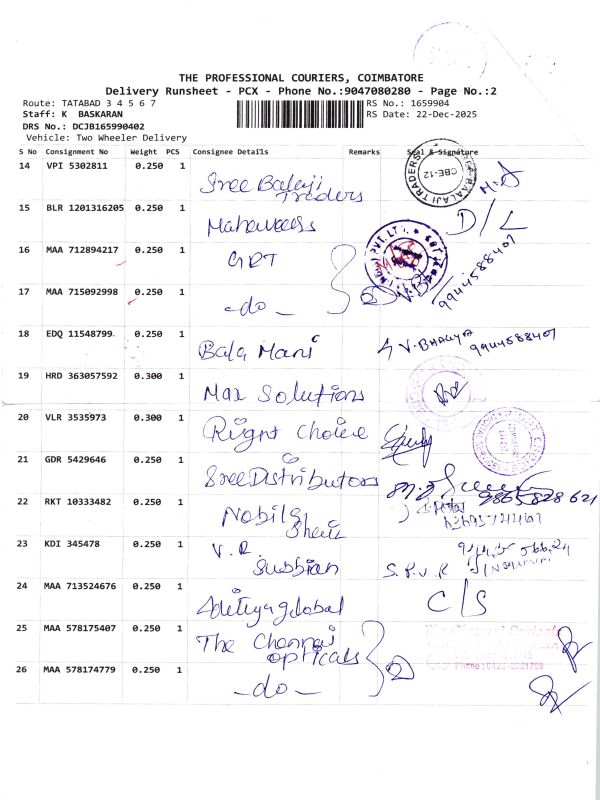 THE PROFESSIONAL COURIERS, COIMBATORE
Delivery Runsheet - PCX - Phone No.:9047080280 - Page No.:2
Route: TATABAD 3 4 5 6 7 RS No.: 1659904
Staff: K BASKARAN RS Date: 22-Dec-2025
DRS No.: DCJB165990402
Vehicle: Two Wheeler Delivery
S No Consignment No Weight PCS Consignee Details Remarks Seal & Signature
14 VPI 5302811 0.250 1 Sree Balaji Traders BALAJI TRADERS CBE-12
15 BLR 1201316205 0.250 1 D/L
16 MAA 712894217 0.250 1 GRT
17 MAA 715092998 0.250 1 -do- 2 9944588407
18 EDQ 11548799 0.250 1 Bala Mani V. BHAGYA 9944588407
19 HRD 363057592 0.300 1 Max Solutions
20 VLR 3535973 0.300 1 Right Choice
21 GDR 5429646 0.250 1 Sree Distributors
22 RKT 10333482 0.250 1 9865828621
23 KDI 345478 0.250 1 V.R. Subbian S.P.V.R
24 MAA 713524676 0.250 1 Adithya global C/S
25 MAA 578175407 0.250 1 The Chennai opticals
26 MAA 578174779 0.250 1 -do- 2